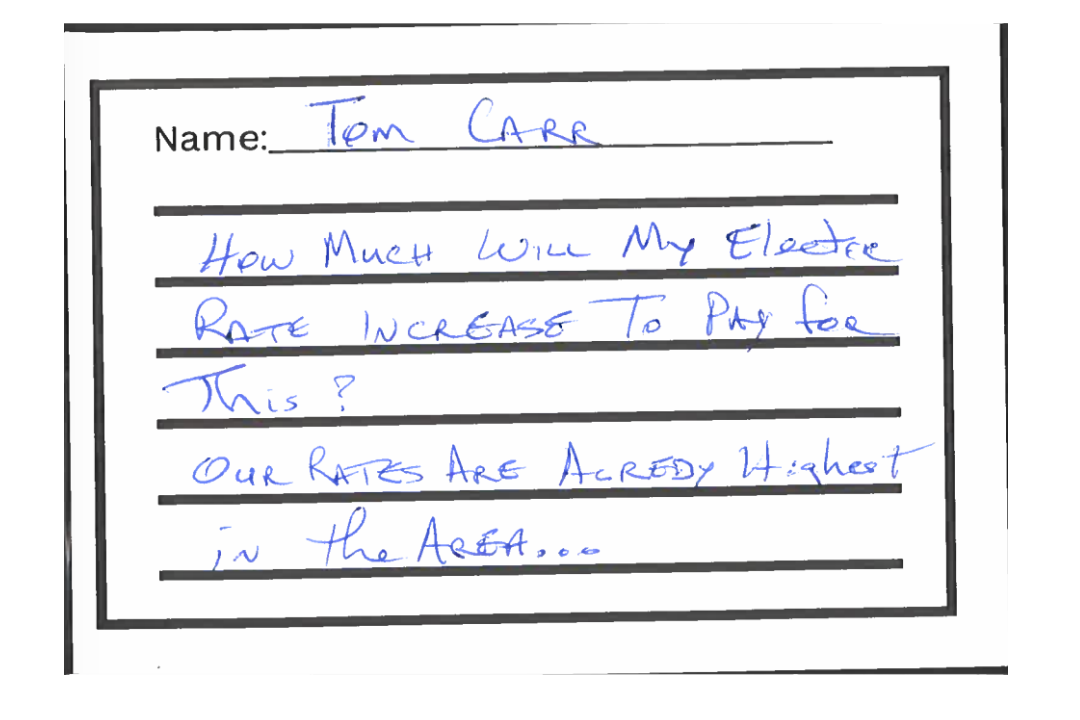 Name: Tom CARR
How Much Will My Electric
RATE INCREASE To PAY for
This ?
OUR RATES ARE ALREDY Highest
in the AREA...